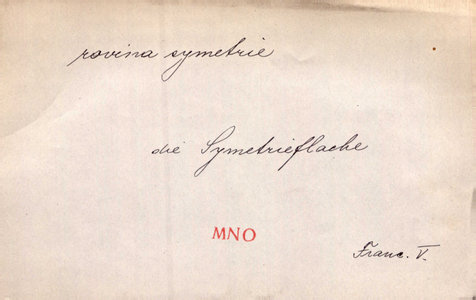 rovina symetrie
die Symetrieflache
MNO
Franc. V.